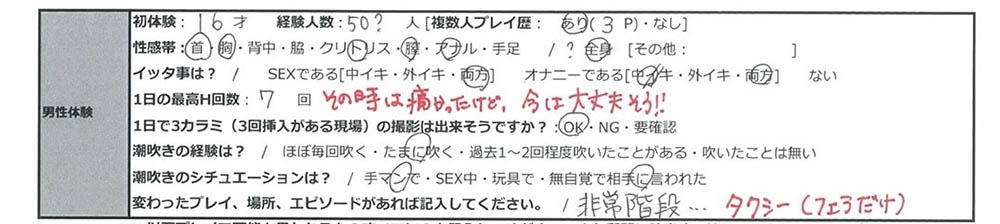 初体験：16才 経験人数：50？人 [複数人プレイ歴：あり(3P)・なし]
性感帯：首・胸・背中・脇・クリトリス・膣・アナル・手足 / ? 全身 [その他： ]
イッタ事は？ / SEXである[中イキ・外イキ・両方] オナニーである[中イキ・外イキ・両方] ない
1日の最高H回数：7 回 その時は痛かったけど、今は大丈夫そう!!
男性体験
1日で3カラミ（3回挿入がある現場）の撮影は出来そうですか？：OK・NG・要確認
潮吹きの経験は？ / ほぼ毎回吹く・たまに吹く・過去1～2回程度吹いたことがある・吹いたことは無い
潮吹きのシチュエーションは？ / 手マンで・SEX中・玩具で・無自覚で相手に言われた
変わったプレイ、場所、エピソードがあれば記入してください。 / 非常階段… タクシー(フェラだけ)